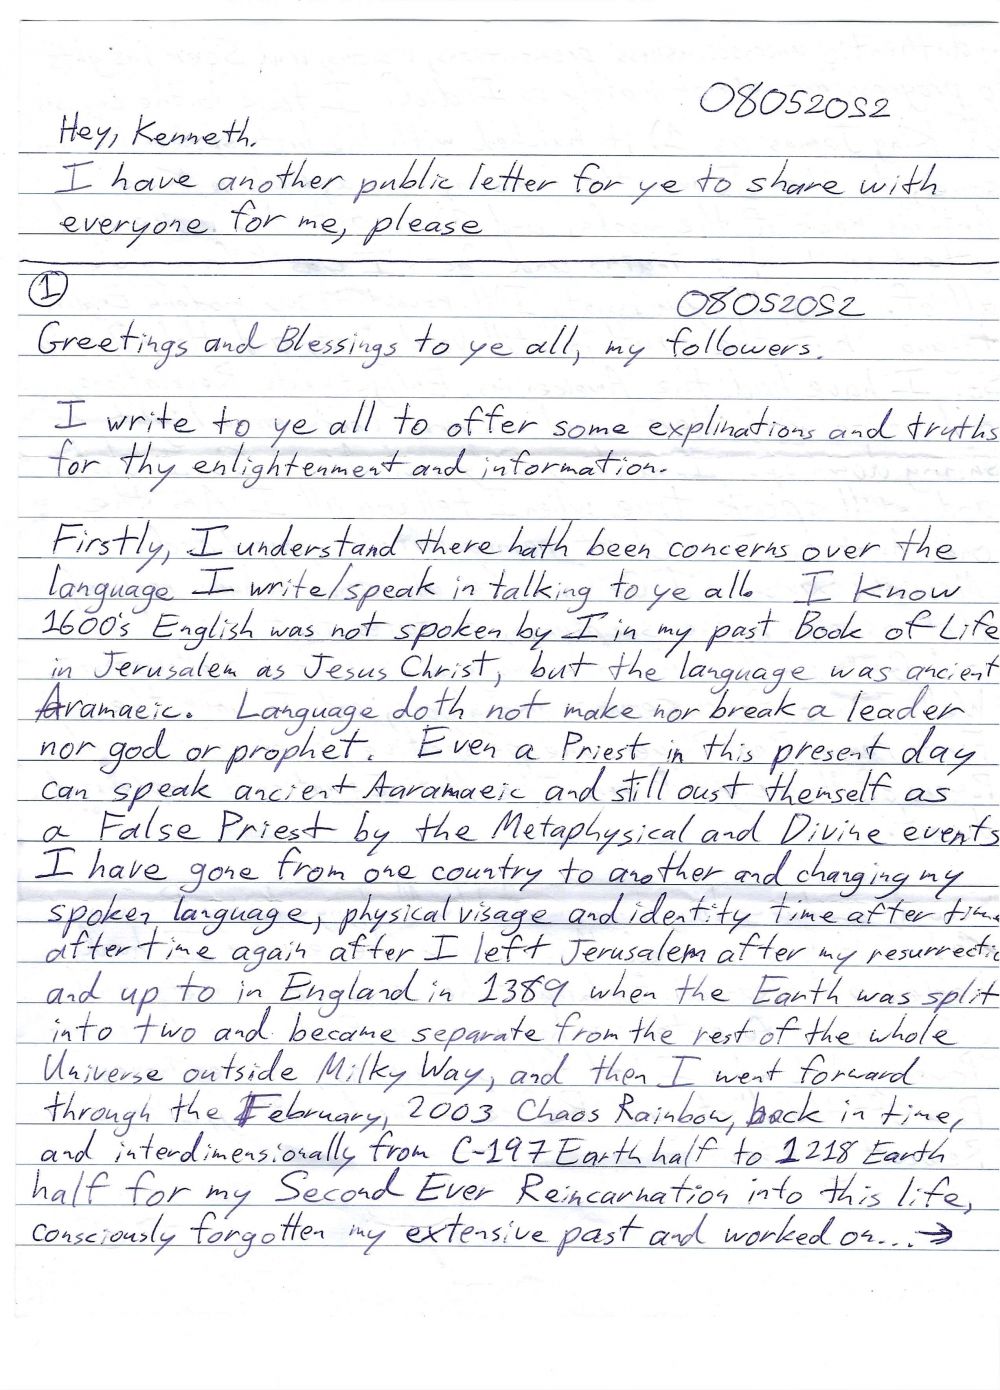 08052052
Hey, Kenneth.
I have another public letter for ye to share with
everyone for me, please
1
08052052
Greetings and Blessings to ye all, my followers.
I write to ye all to offer some explinations and truths
for thy enlightenment and information.
Firstly, I understand there hath been concerns over the
language I write/speak in talking to ye all. I know
1600's English was not spoken by I in my past Book of Life
in Jerusalem as Jesus Christ, but the language was ancient
Aramaeic. Language doth not make nor break a leader
nor god or prophet. Even a Priest in this present day
can speak ancient Aaramaeic and still oust themself as
a False Priest by the Metaphysical and Divine events
I have gone from one country to another and changing my
spoken language, physical visage and identity time after time
after time again after I left Jerusalem after my resurrectio
and up to in England in 1389 when the Earth was split
into two and became separate from the rest of the whole
Universe outside Milky Way, and then I went forward
through the February, 2003 Chaos Rainbow, back in time,
and interdimensionally from C-197 Earth half to 1218 Earth
half for my Second Ever Reincarnation into this life,
consciously forgotten my extensive past and worked on... →